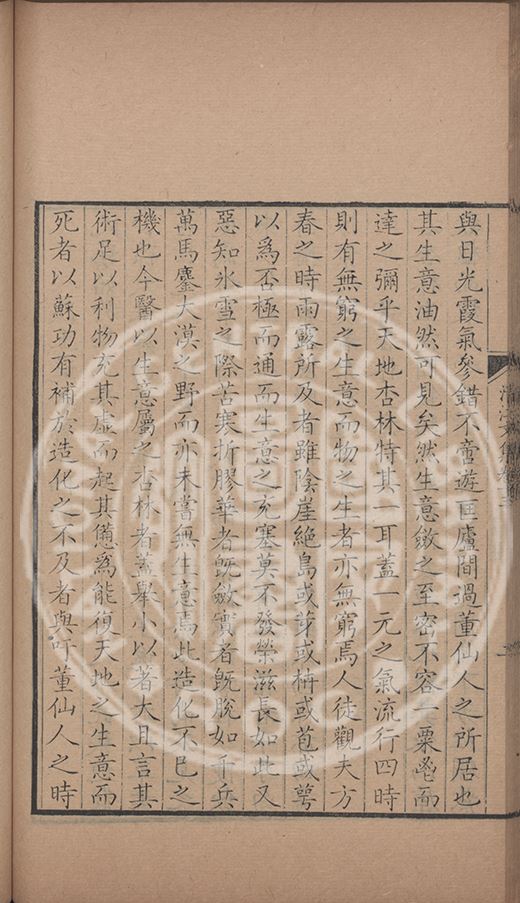 與日光霞氣參錯不啻遊匡廬間過董仙人之所居也
其生意油然可見矣然生意斂之至密不容一粟鬯而
達之彌乎天地杏林特其一耳蓋一元之氣流行四時
則有無窮之生意而物之生者亦無窮焉人徒觀夫方
春之時雨露所及者雖陰崖絶島或芽或枿或苞或萼
以爲否極而通而生意之充塞莫不發榮滋長如此又
惡知氷雪之際苦寒折膠華者旣斂實者旣脫如千兵
萬馬鏖大漠之野而亦未嘗無生意焉此造化不已之
機也今醫以生意屬之杏林者蓋舉小以著大且言其
術足以利物充其虛而起其憊爲能復天地之生意而
死者以蘇功有補於造化之不及者與吁董仙人之時